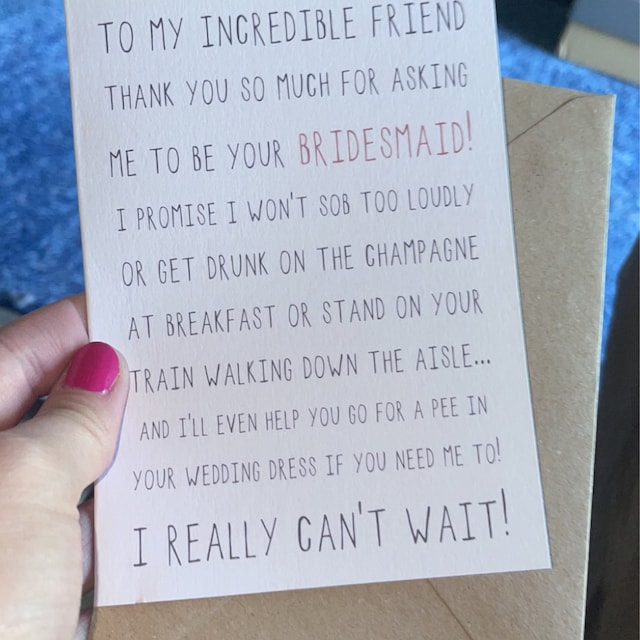 TO MY INCREDIBLE FRIEND
THANK YOU SO MUCH FOR ASKING
ME TO BE YOUR BRIDESMAID!
I PROMISE I WON'T SOB TOO LOUDLY
OR GET DRUNK ON THE CHAMPAGNE
AT BREAKFAST OR STAND ON YOUR
TRAIN WALKING DOWN THE AISLE...
AND I'LL EVEN HELP YOU GO FOR A PEE IN
YOUR WEDDING DRESS IF YOU NEED ME TO!
I REALLY CAN'T WAIT!